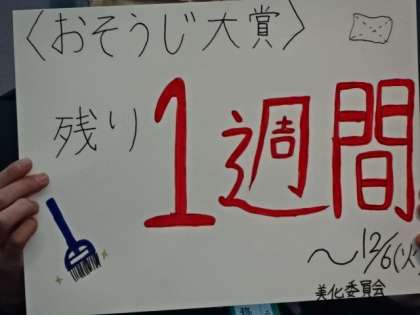 〈おそうじ大賞〉
残り 1週間
～12/6(火
美化委員会